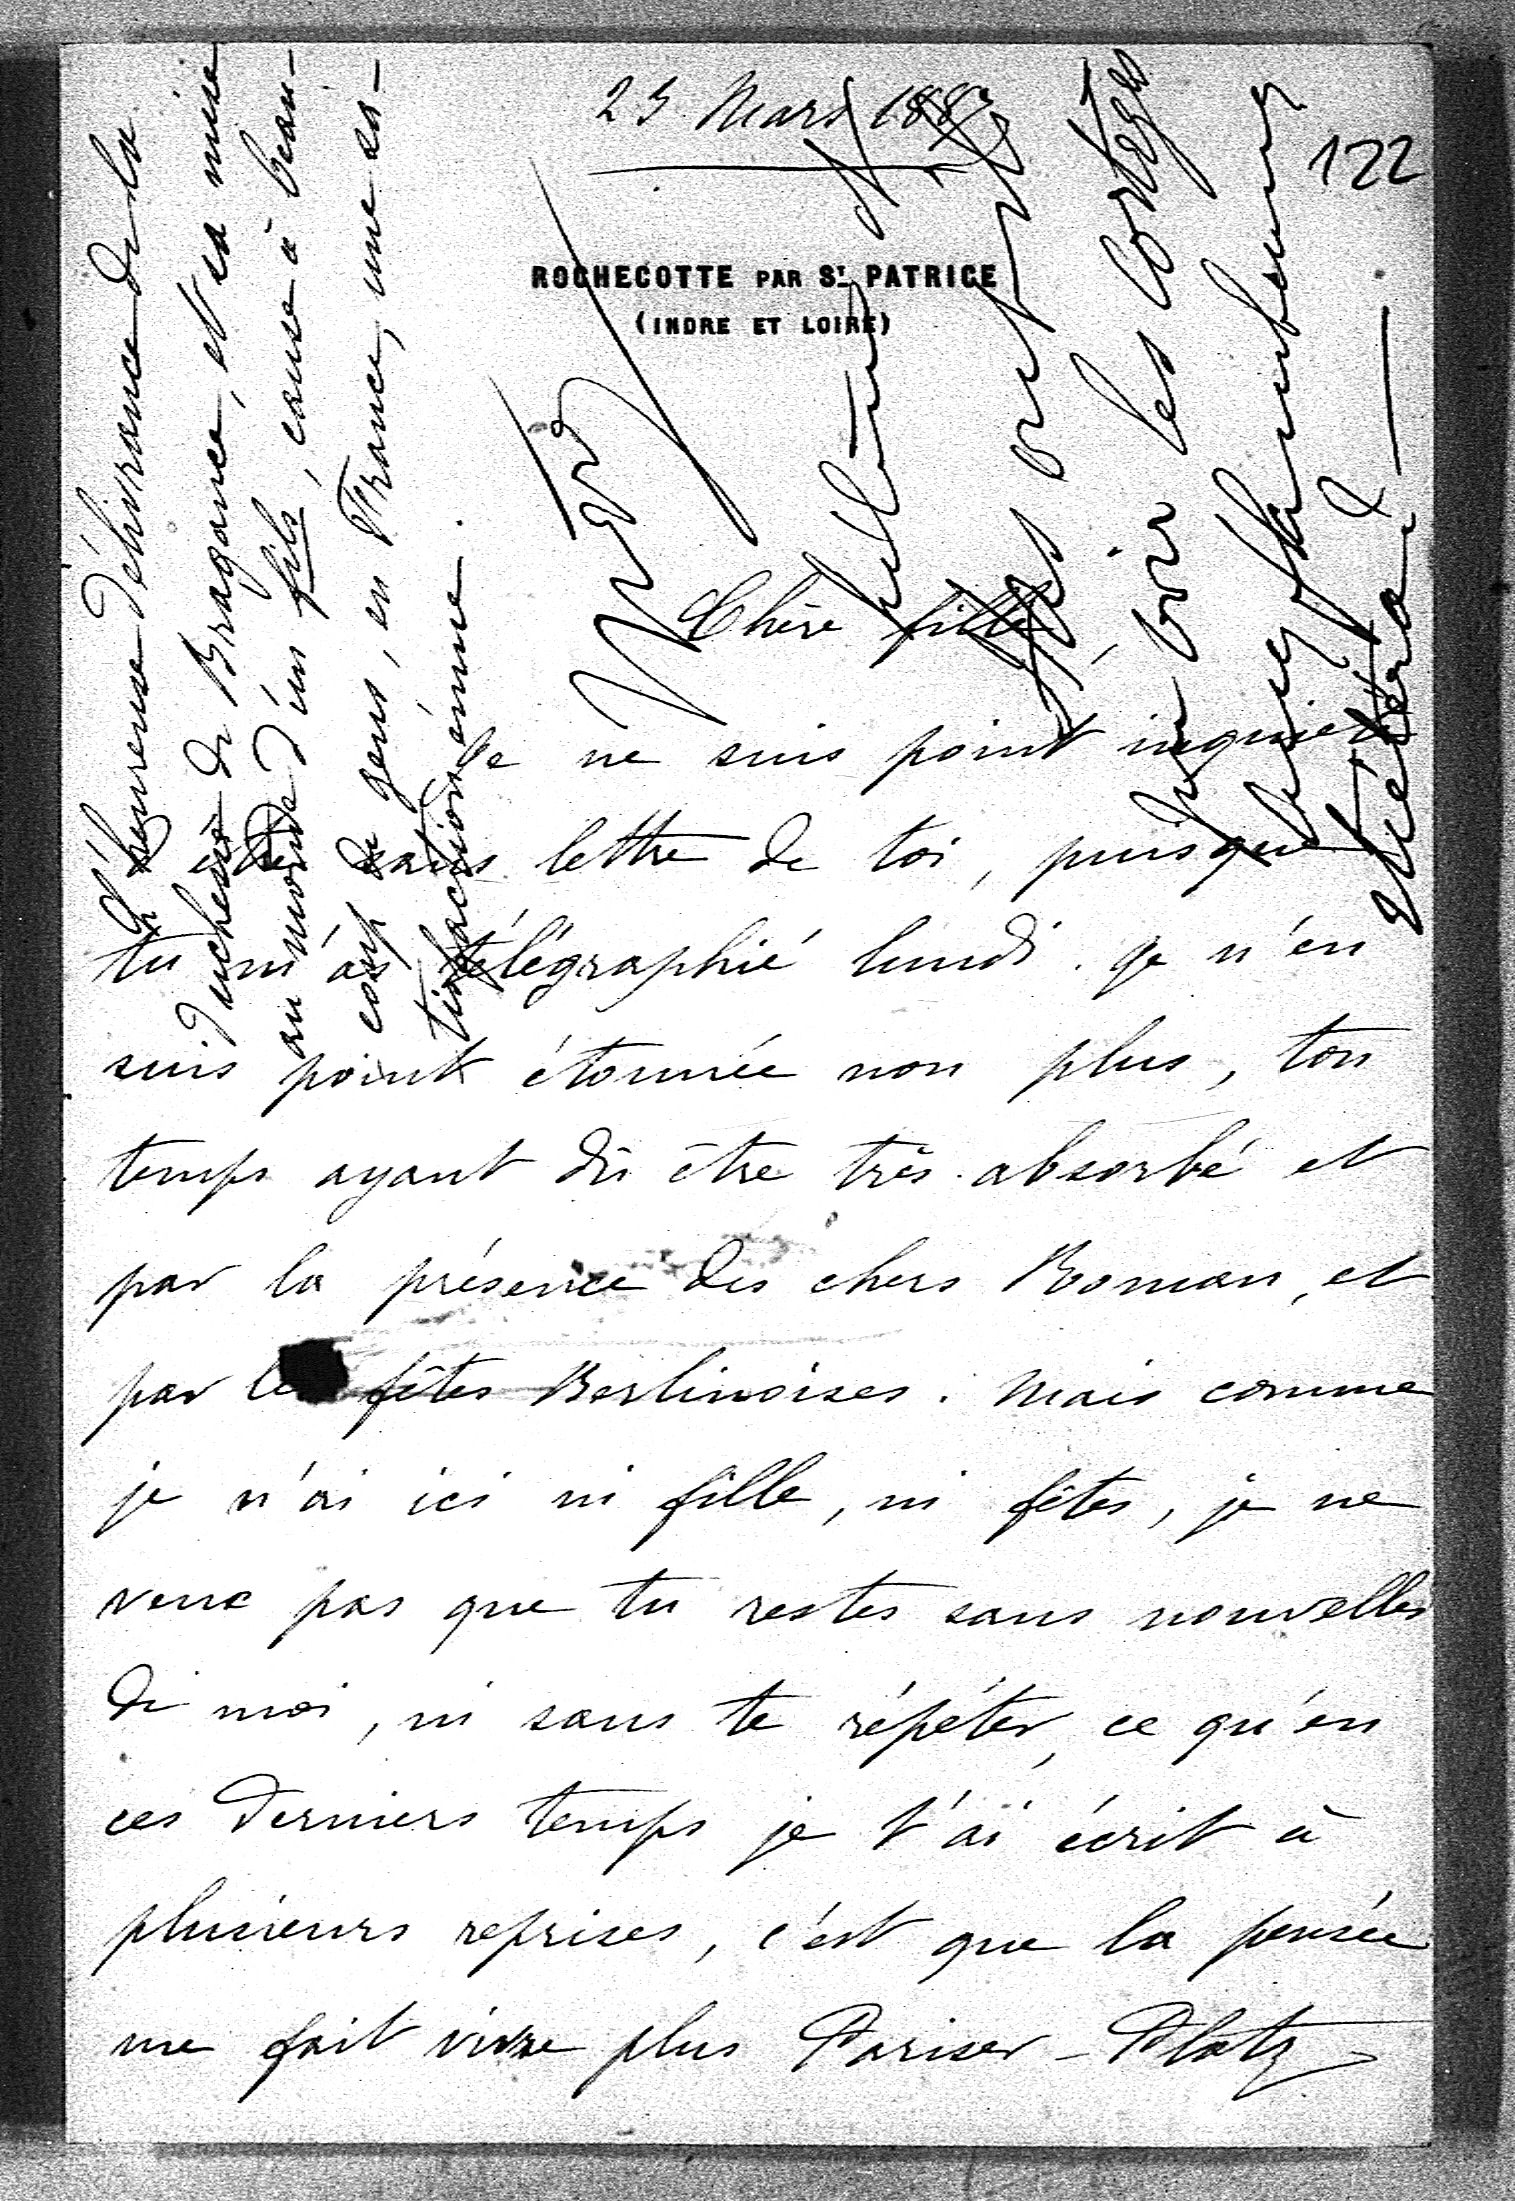 23 Mars 1887
122
ROCHECOTTE PAR ST. PATRICE
(INDRE ET LOIRE)
Chère fille,
Je ne suis point inquiète
d'être sans lettre de toi, puisque
tu m'as télégraphié lundi. Je n'en
suis point étonnée non plus, ton
temps ayant dû être très absorbé et
par la présence des chers Roman, et
par les fêtes Berlinoises. Mais comme
je n'ai ici ni fille, ni fêtes, je ne
veux pas que tu restes sans nouvelles
de moi, ni sans te répéter, ce qu'en
ces derniers temps je t'ai écrit à
plusieurs reprises, c'est que la pensée
me fait vivre plus Pariser-Platz
L'heureuse délivrance de la
Duchesse de Bragance, et sa mise
au monde d'un fils, cause à beau-
coup de gens, en France, une sa-
tisfaction énorme.
les cortèges